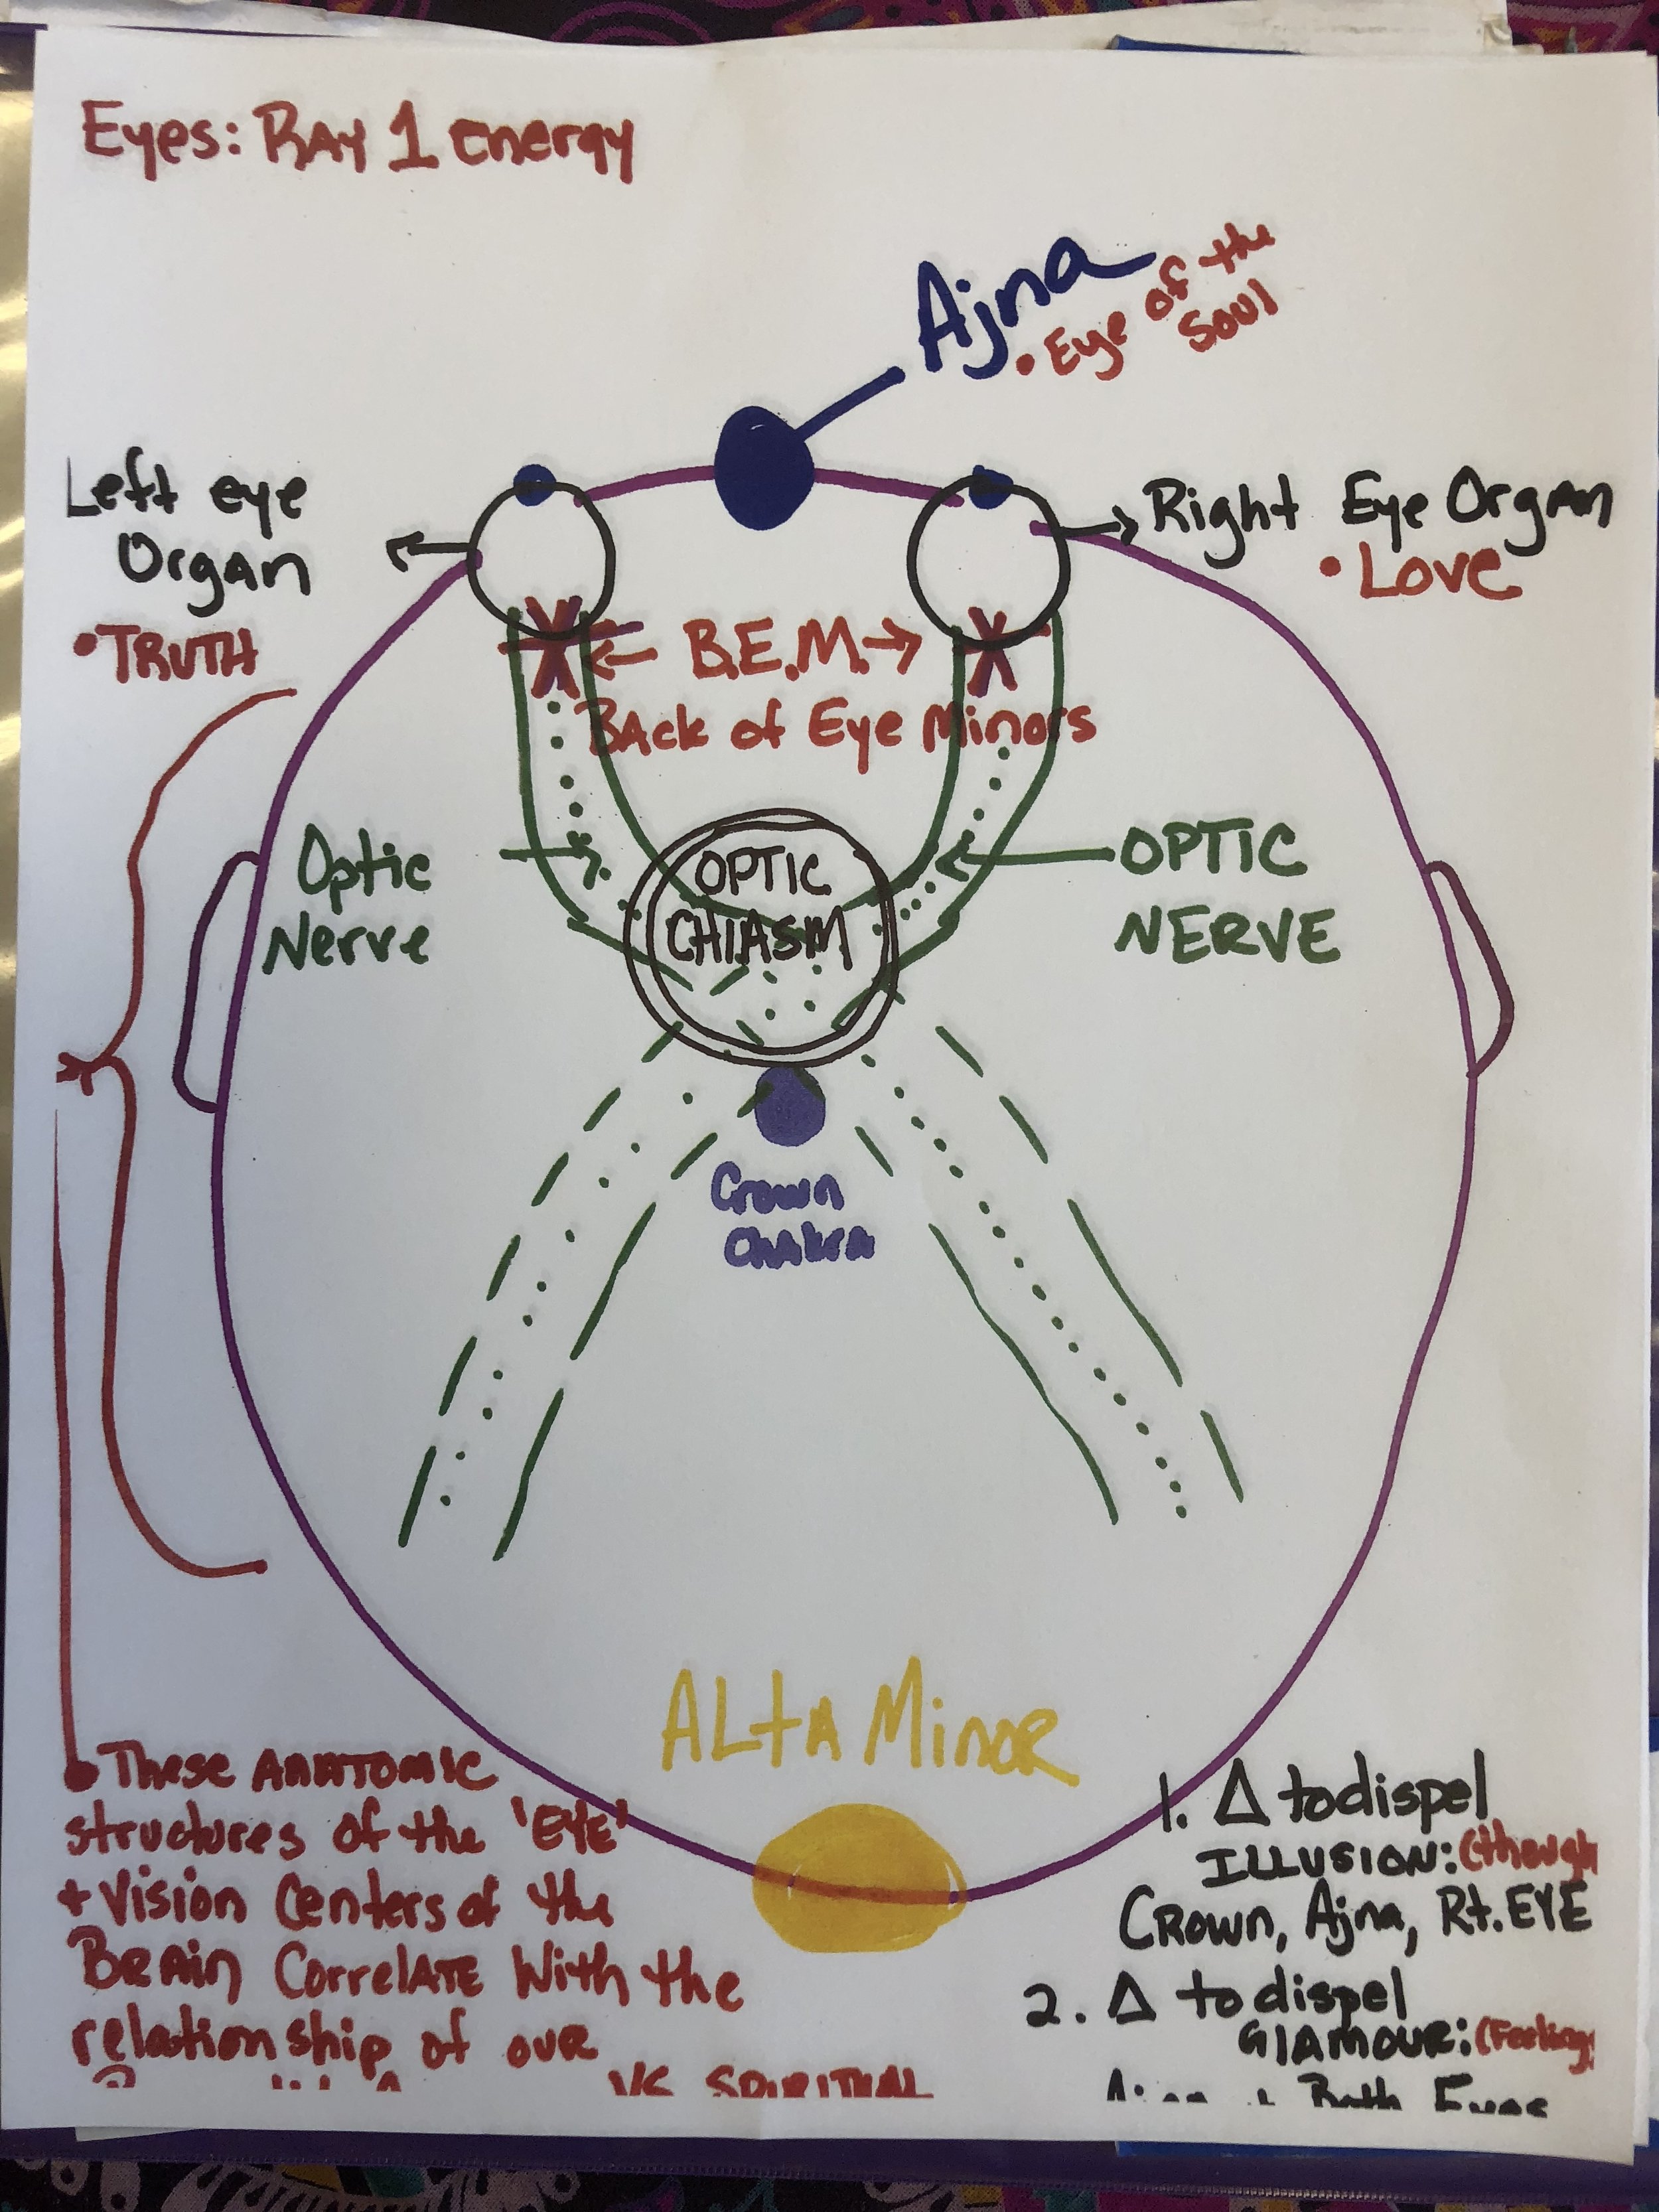 Eyes: RAY 1 Energy
Ajna
• Eye of the
Soul
Left eye
Organ
• TRUTH
Right Eye Organ
• Love
← B.E.M. →
Back of Eye Minors
Optic
Nerve
OPTIC
CHIASM
OPTIC
NERVE
Crown
Chakra
ALTA MINOR
• These ANATOMIC
structures of the 'EYE'
+ Vision Centers of the
Brain Correlate With the
relationship of our
VS SPIRITUAL
1. Δ to dispel
ILLUSION: (though
Crown, Ajna, Rt. EYE
2. Δ to dispel
GLAMOUR: (Feeling
Both Eyes